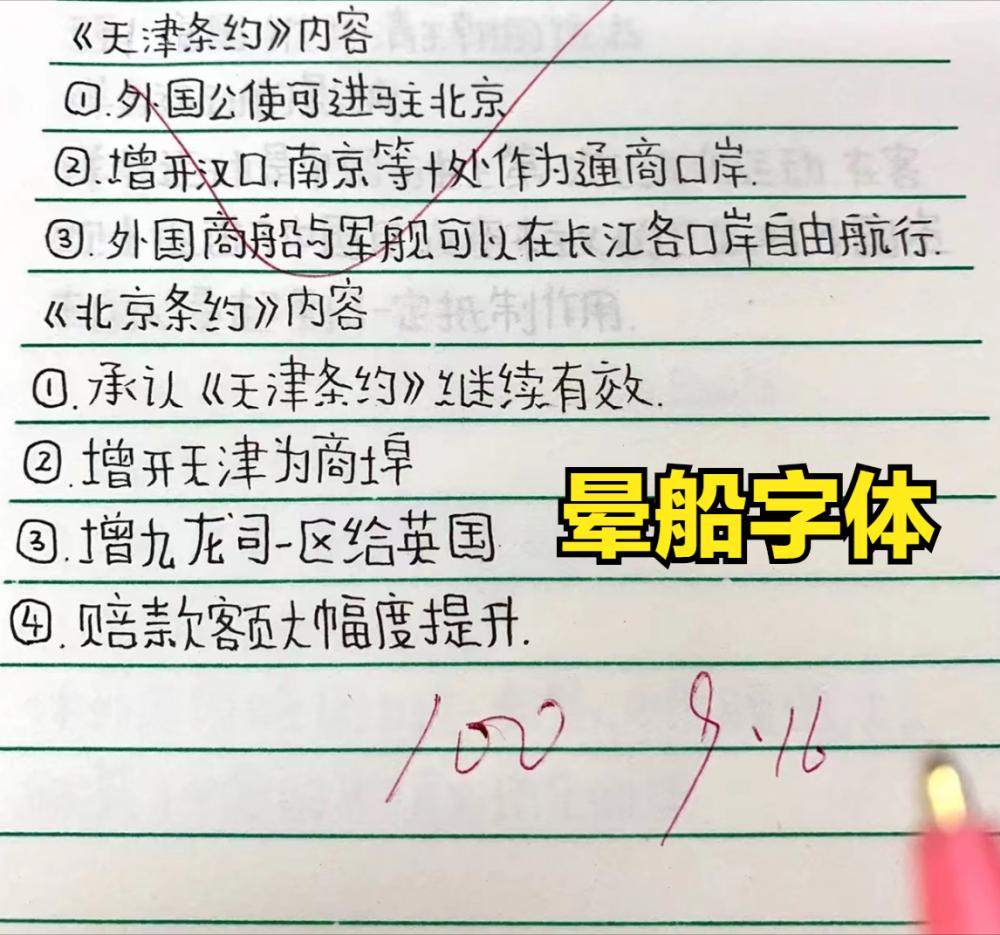 《天津条约》内容
①.外国公使可进驻北京
②.增开汉口.南京等十处作为通商口岸.
③.外国商船与军舰可以在长江各口岸自由航行.
《北京条约》内容
①.承认《天津条约》继续有效.
②.增开天津为商埠
③.增九龙司一区给英国.
④.赔款客页大幅度提升.
晕船字体
100 9.16